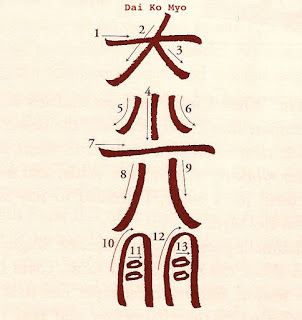 Dai Ko Myo
1 2 3
大
4
5 6
7
8 9
光
10 11 12 13
明